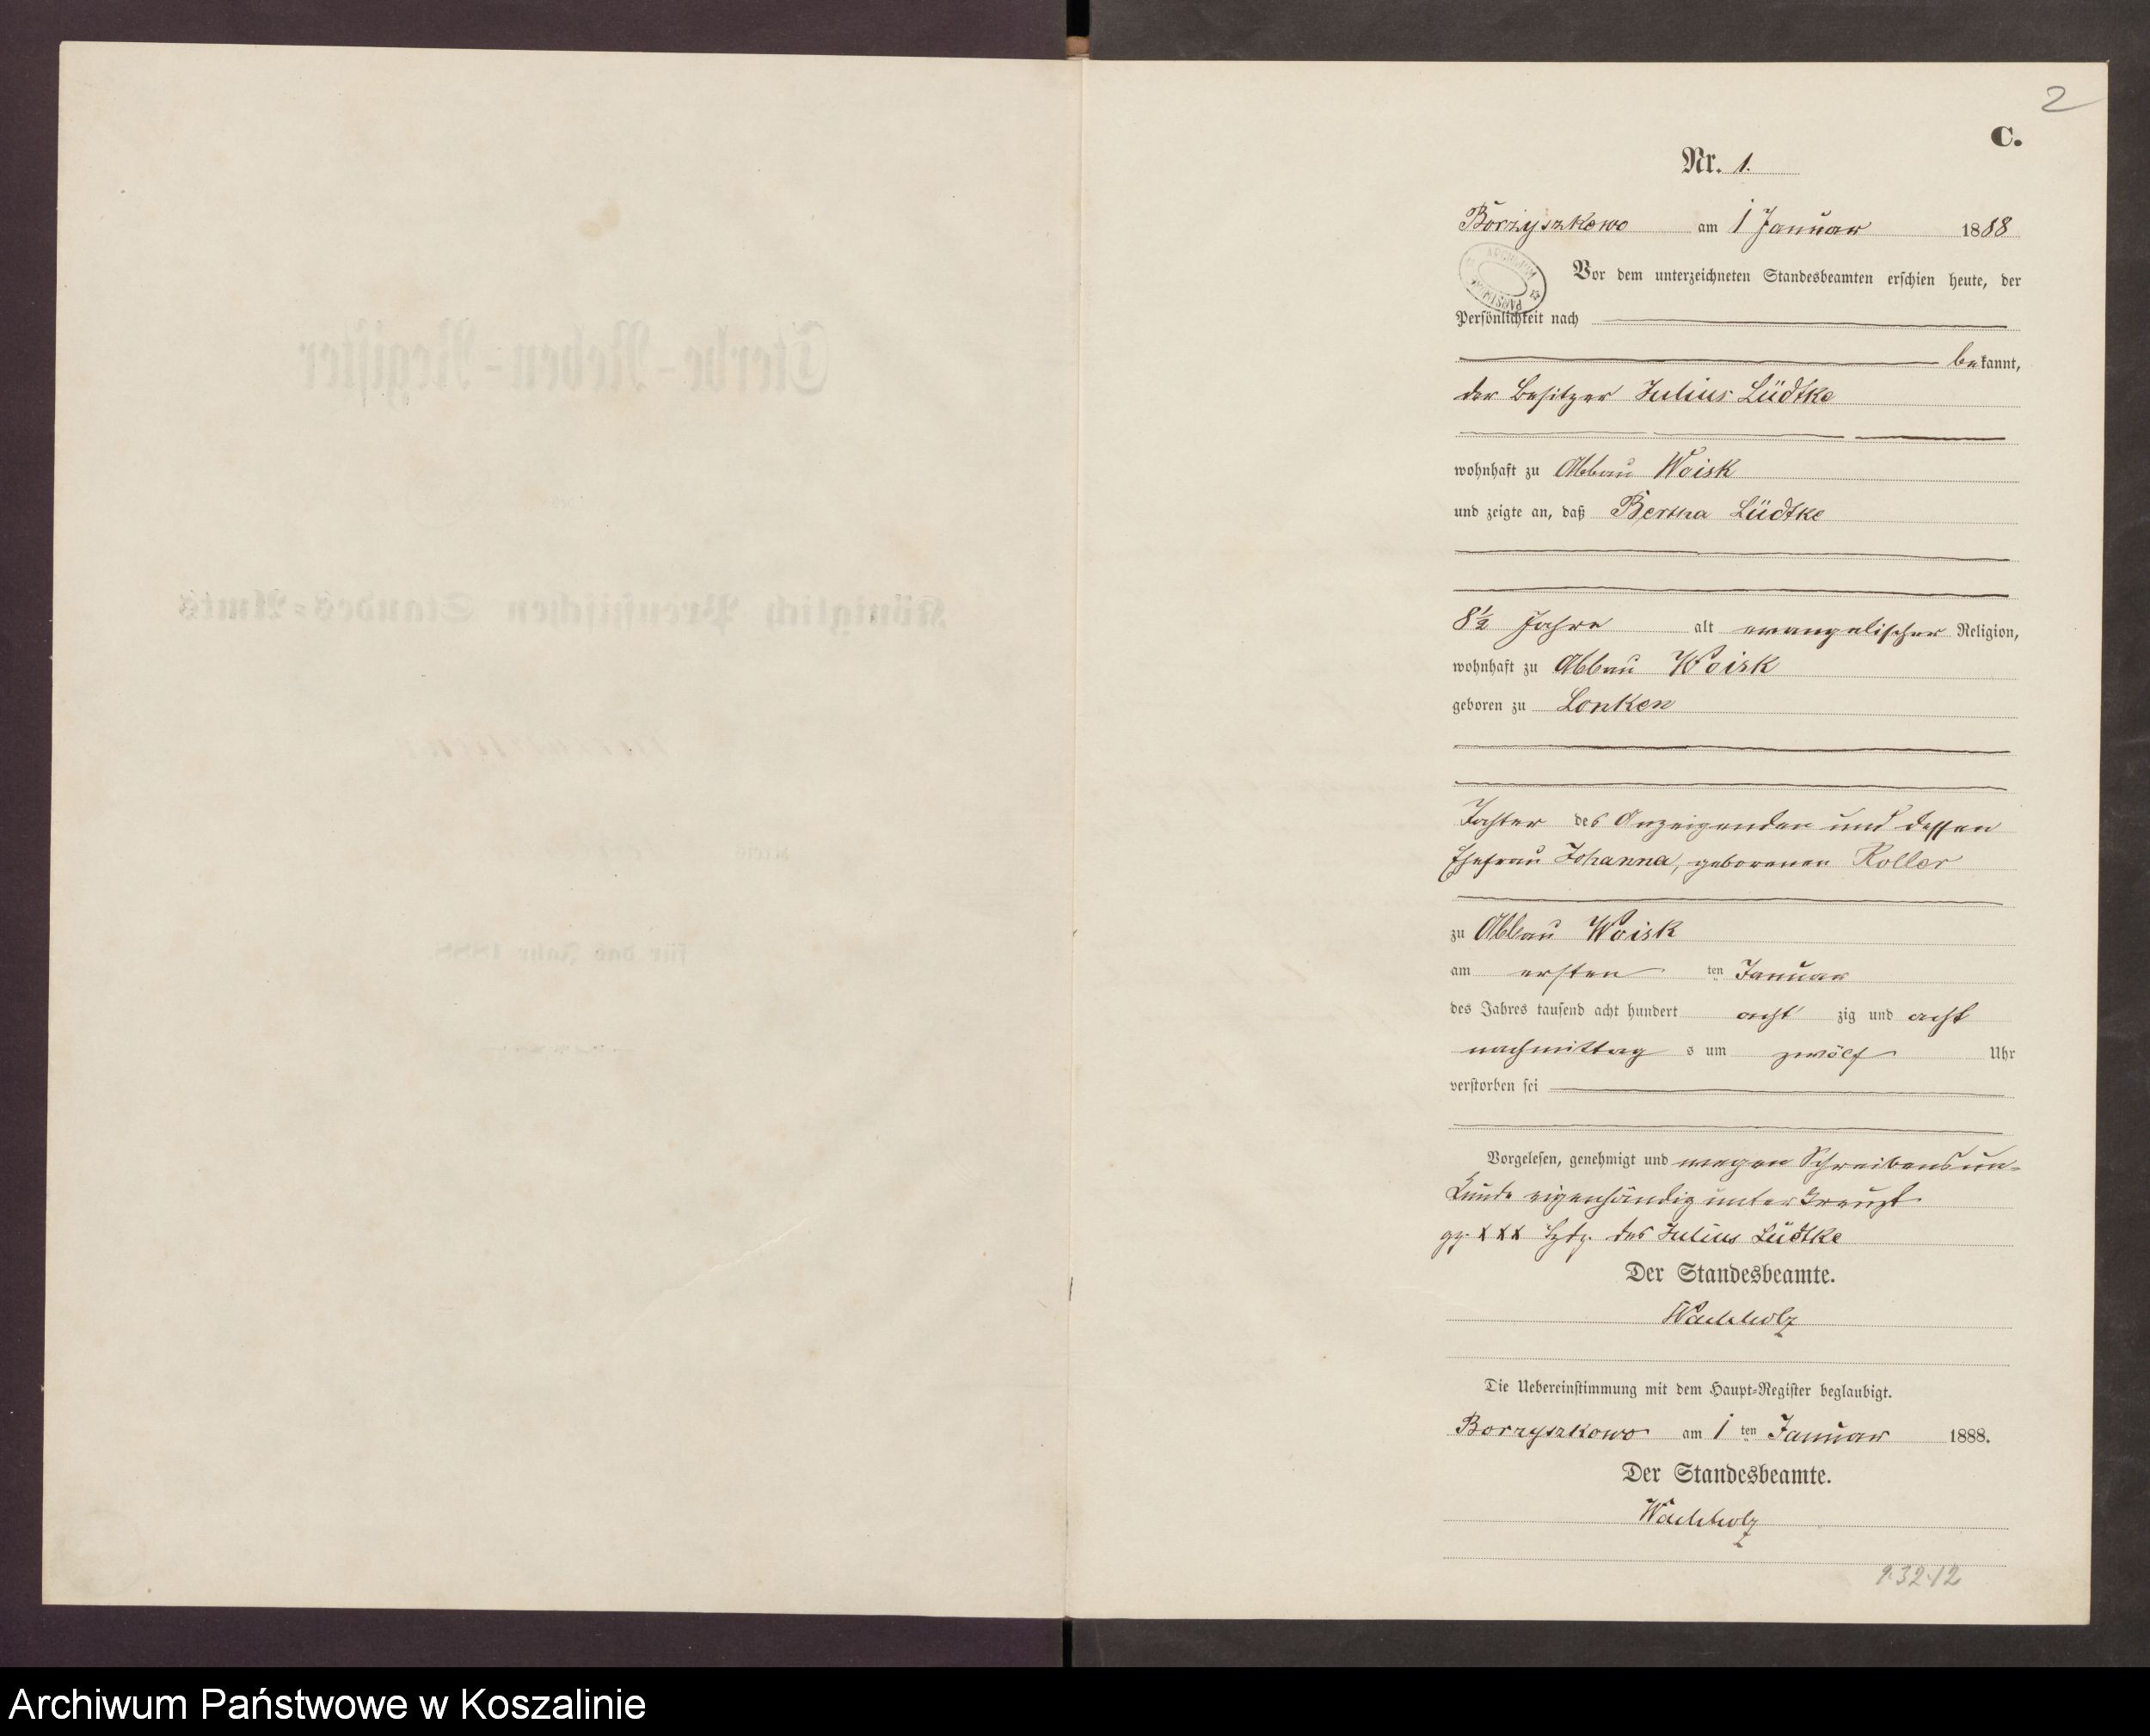 2
C.
Nr. 1.
Borzyszkowo am 1 Januar 1888
Vor dem unterzeichneten Standesbeamten erschien heute, der
Persönlichkeit nach
bekannt,
der Besitzer Julius Lüdtke
wohnhaft zu Abbau Woisk
und zeigte an, daß Bertha Lüdtke
8½ Jahre alt evangelischer Religion,
wohnhaft zu Abbau Woisk
geboren zu Lonken
Tochter des Anzeigenden und dessen
Ehefrau Johanna, geborenen Koller
zu Abbau Woisk
am ersten ten Januar
des Jahres tausend acht hundert acht zig und acht
nachmittag s um zwölf Uhr
verstorben sei
Vorgelesen, genehmigt und wegen Schreibensun-
kunde eigenhändig unterkreuzt
gz. XXX Hdz. des Julius Lüdtke
Der Standesbeamte.
Wachholz
Die Uebereinstimmung mit dem Haupt-Register beglaubigt.
Borzyszkowo am 1 ten Januar 1888.
Der Standesbeamte.
Wachholz
9.32.12
Sterbe-Neben-Register
Königlich Preußischen Standes-Amts
Kreis
für das Jahr 1888.
Archiwum Państwowe w Koszalinie